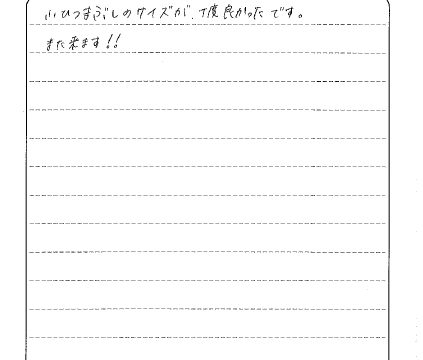 小ひつまぶしのサイズが、丁度良かったです。
また来ます!!